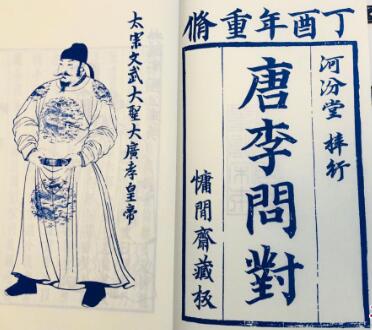 丁酉年重脩
河汾堂 梓行
唐李問對
慵閒齋藏板
太宗文武大聖大廣孝皇帝